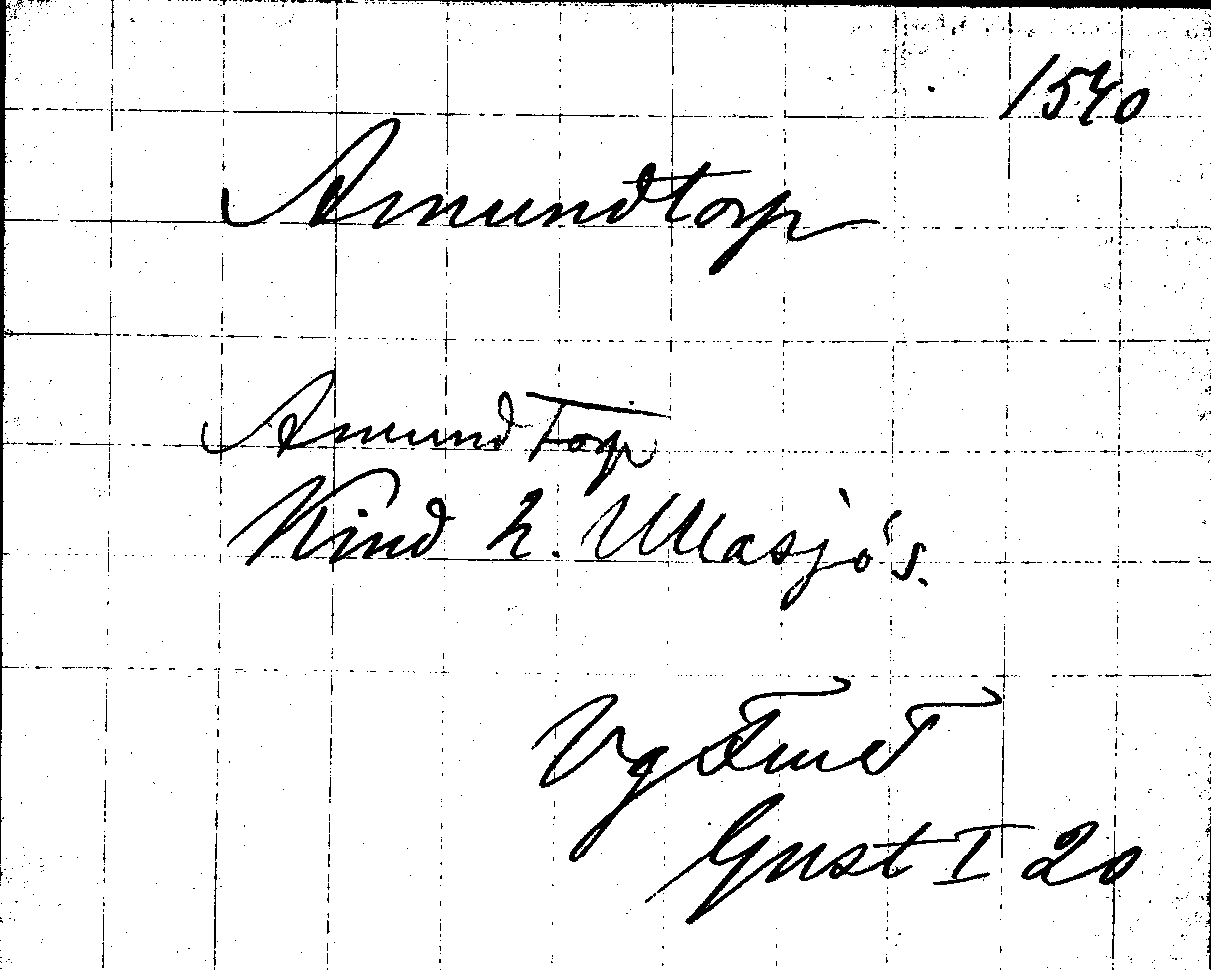 1540
Amundtorp
Amund Torp
Kind h. Ullasjö s.
Vg
Gust I 20